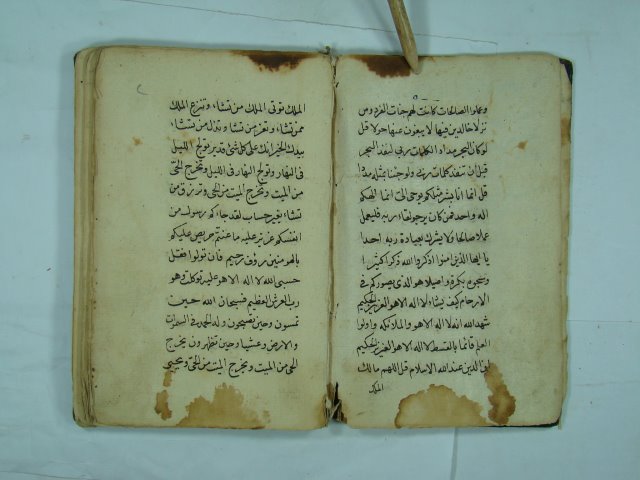 وعملوا الصالحات كانت لهم جنات الفردوس
نزلا خالدين فيها لا يبغون عنها حولا قل
لو كان البحر مدادا لكلمات ربي لنفد البحر
قبل ان تنفد كلمات ربي ولو جئنا بمثله مددا
قل انما انا بشر مثلكم يوحى الى انما الهكم
اله واحد فمن كان يرجو لقاء ربه فليعمل
عملا صالحا ولا يشرك بعبادة ربه احدا
يا ايها الذين امنوا اذكروا الله ذكرا كثيرا
وسبحوه بكرة واصيلا هو الذى يصوركم في
الارحام كيف يشاء لا اله الا هو العزيز الحكيم
شهد الله انه لا اله الا هو والملائكه واولوا
العلم قائما بالقسط لا اله الا هو العزيز الحكيم
ان الدين عند الله الاسلام قل اللهم مالك
الملك
الملك توتى الملك من تشاء وتنزع الملك
ممن تشاء وتعز من تشا وتذل من تشاء
بيدك الخير انك على كل شئ قدير تولج الليل
في النهار وتولج النهار في الليل وتخرج الحى
من الميت وتخرج الميت من الحى وترزق من
تشاء بغير حساب لقد جاءكم رسول من
انفسكم عزيز عليه ما عنتم حريص عليكم
بالمومنين رؤف رحيم فان تولوا فقل
حسبى الله لا اله الا هو عليه توكلت وهو
رب العرش العظيم فسبحان الله حين
تمسون وحين تصبحون وله الحمد في السموات
والارض وعشيا وحين تظهرون يخرج
الحى من الميت ويخرج الميت من الحى ويحيى